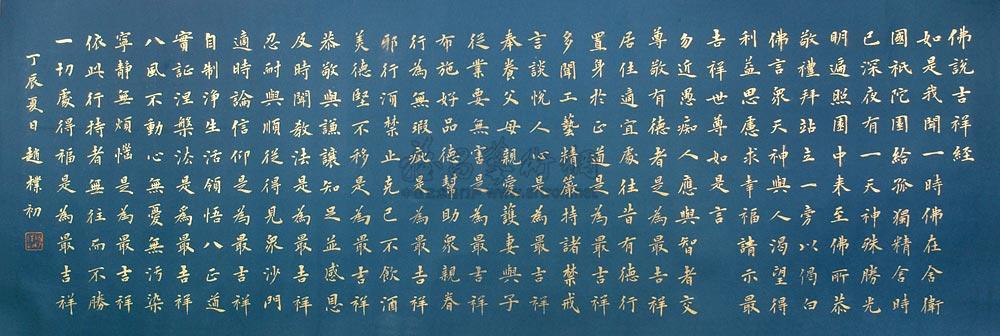 佛說吉祥經
如是我聞一時佛在舍衛
國祇陀園給孤獨精舍時
已深夜有一天神殊勝光
明遍照園中来至佛所恭
敬禮拜站立一旁以偈白
佛言眾天神與人渴望得
利益思慮求幸福請示最
吉祥世尊如是言
勿近愚痴人應與智者交
尊敬有德者是為最吉祥
居住適宜處往昔有德行
置身於正道是為最吉祥
多聞工藝精嚴持諸禁戒
言談悅人心是為最吉祥
奉養父母親愛護妻與子
從業要無害是為最吉祥
布施好品德幫助眾親眷
行為無瑕疵是為最吉祥
邪行須禁止克己不飲酒
美德堅不移是為最吉祥
恭敬與謙讓知足並感恩
及時聞教法是為最吉祥
忍耐與順從得見眾沙門
適時論信仰是為最吉祥
自制净生活領悟八正道
實証涅槃法是為最吉祥
八風不動心無憂無污染
寧靜無煩惱是為最吉祥
依此行持者無往而不勝
一切處得福是為最吉祥
丁辰夏日趙樸初